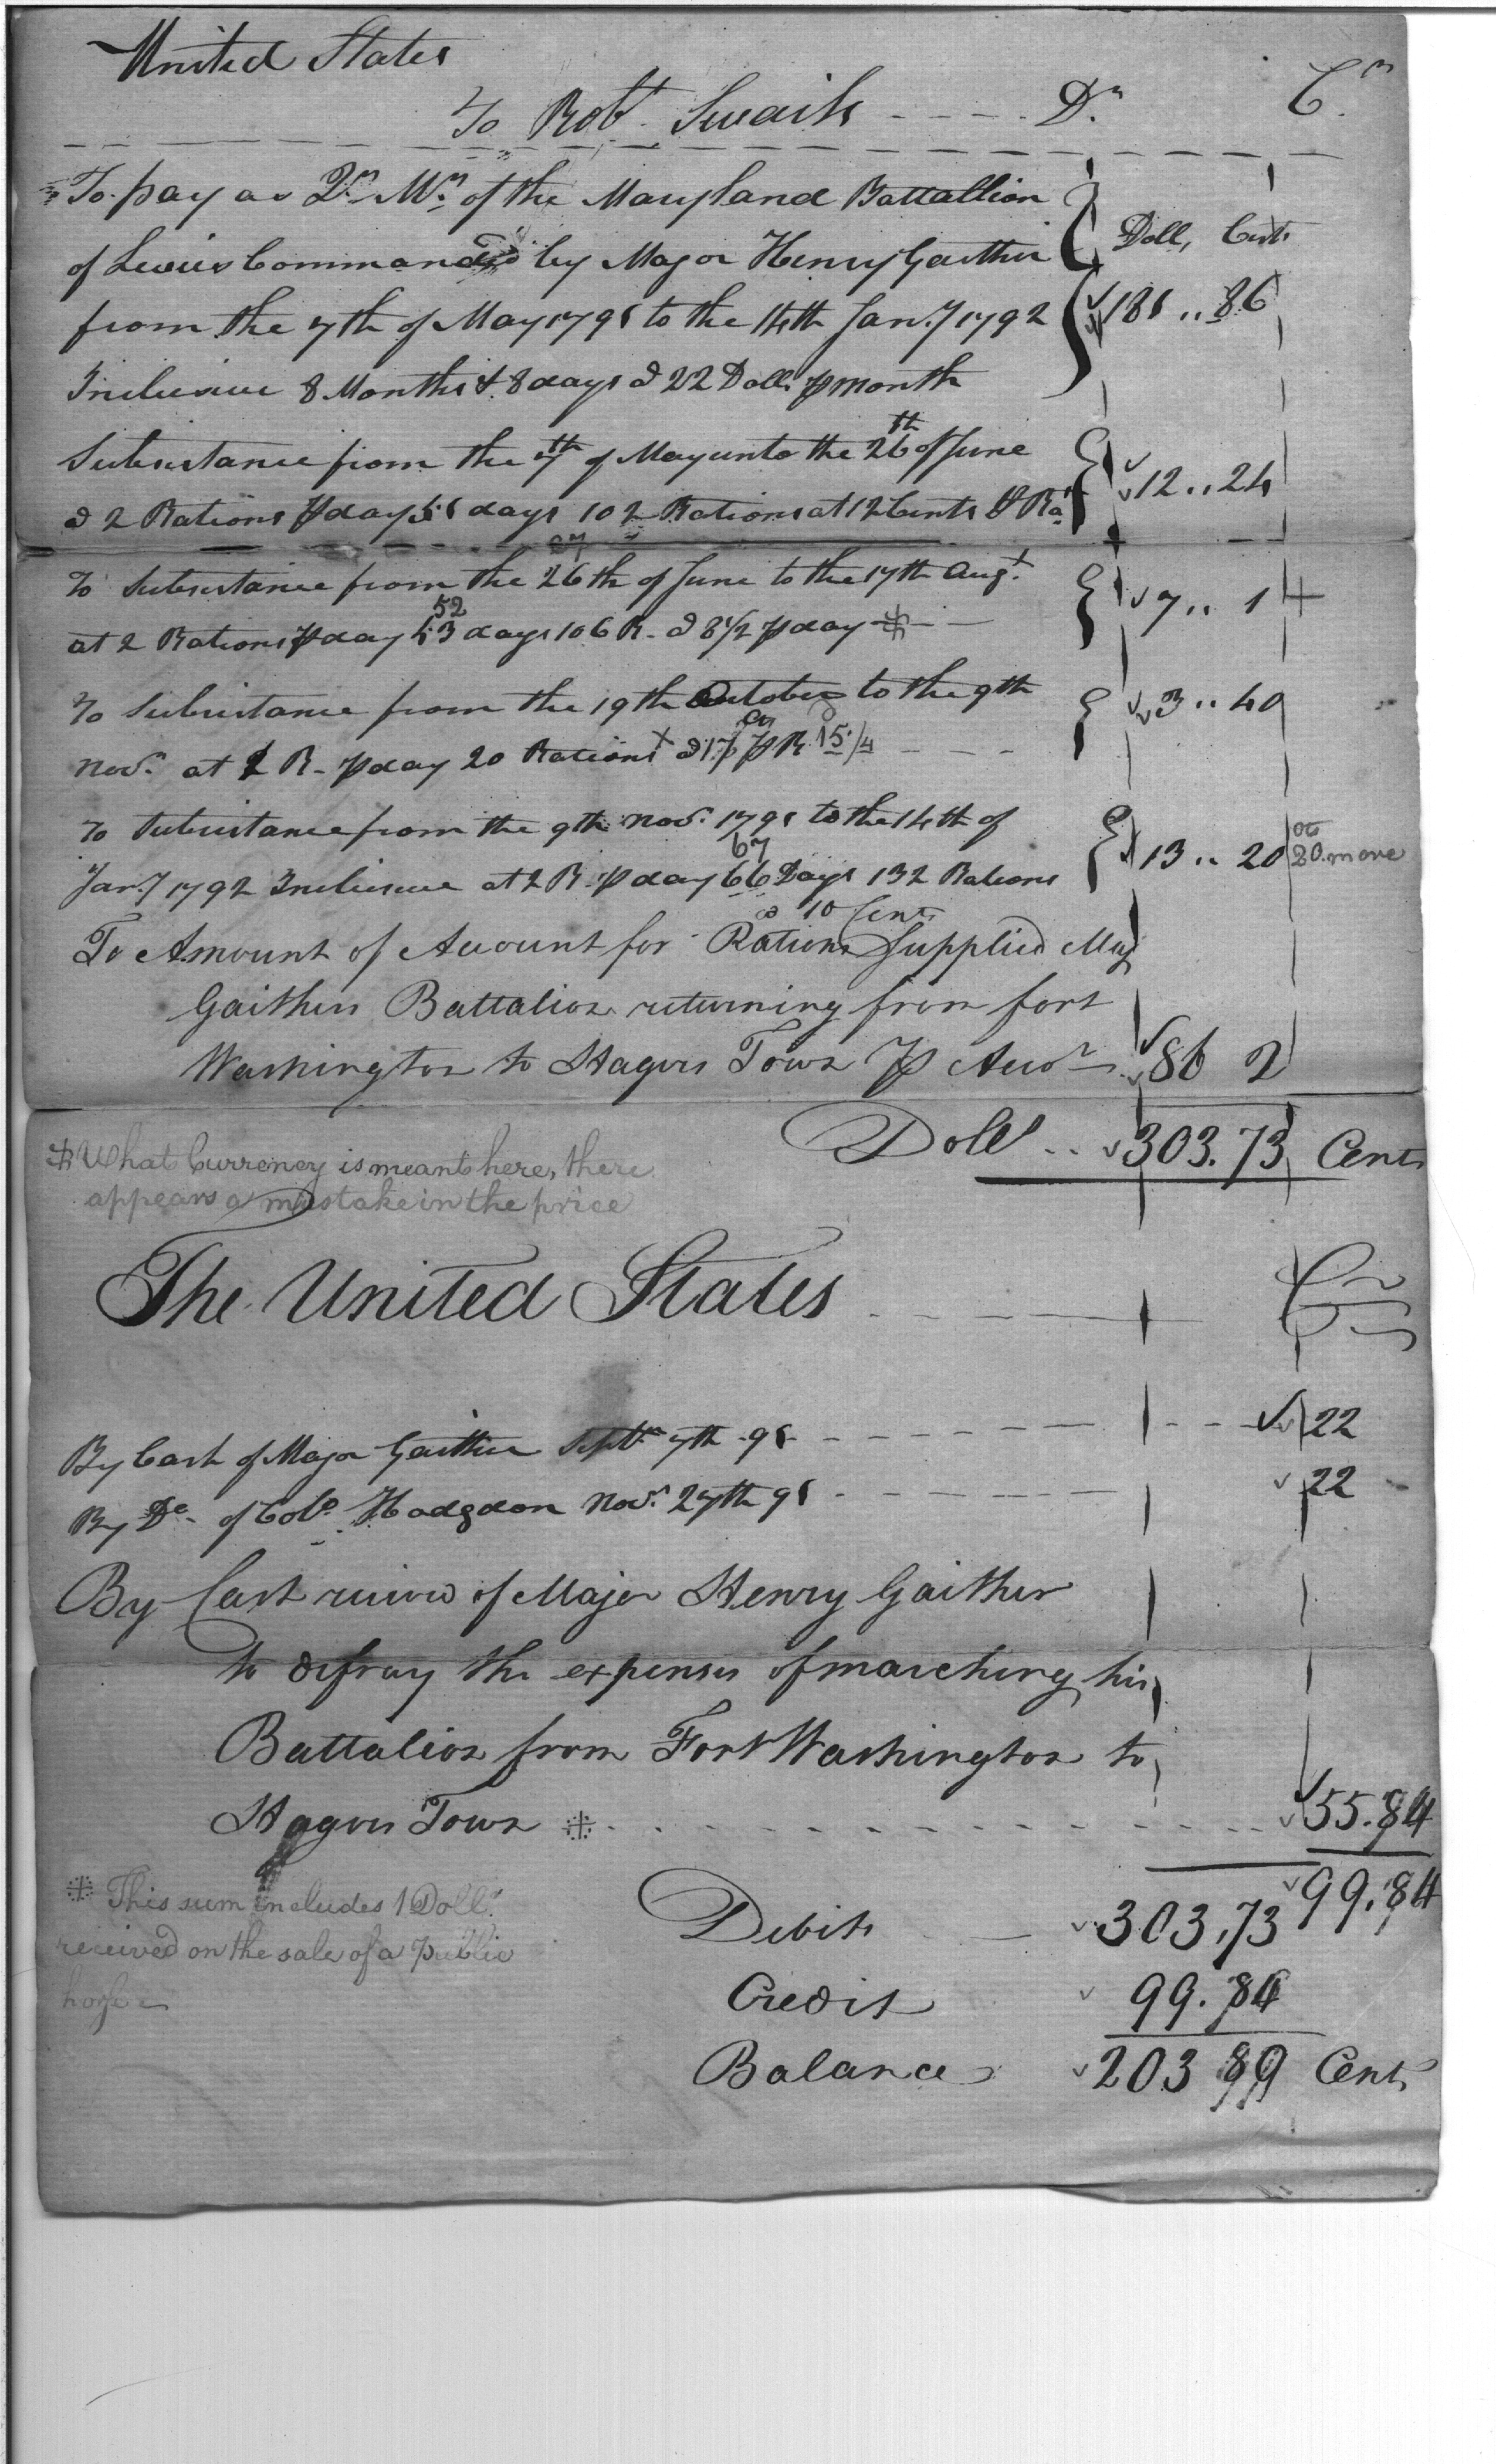 United States
To Robt. Swails Dr. Cr
To pay as Qr. Mr. of the Maryland Battallion
of Levies Commanded by Major Henry Gaither Doll, Cents
from the 7th of May 1791 to the 14th Jan.y 1792 181 .. 86
Inclusive 8 Months & 8 days @ 22 Dolls. p month
Subsistance from the 7th of May unto the 26th of June
@ 2 Rations p day 51 days 102 Rations at 12 Cents p Ra. 12 .. 24
27
To Subsistance from the 26th of June to the 17th Augt.
52
at 2 Rations p day 53 days 106 R. @ 8 1/2 p day 7 .. 14
To Subsistance from the 19th October to the 9th 3 .. 40
Nov.r at 1 R. p day 20 Rations @ 17 p R. 15/4
To Subsistance from the 9th Nov.r 1791 to the 14th of
67
Jan.y 1792 Inclusive at 2 R. p day 66 Days 132 Rations 13 .. 20 20 more
@ 10 Cents
To Amount of Account for Rations Supplied Maj
Gaithers Battalion returning from fort
Washington to Hagers Town p Acco.t 86 2
Dolls .. 303.73 Cents
What Currency is meant here, there
appears a mistake in the price
The United States Cr
By Cash of Major Gaither Septr. 7th 91 22
By Do. of Colo. Hodgdon Nov.r 27th 91 22
By Cash received of Major Henry Gaither
to defray the expenses of marching his
Battalion from Fort Washington to
Hagers Town 55.84
99.84
This sum includes 1 Doll.
received on the sale of a Public
horse
Debits 303.73
Credit 99.84
Balance 203 89 Cents